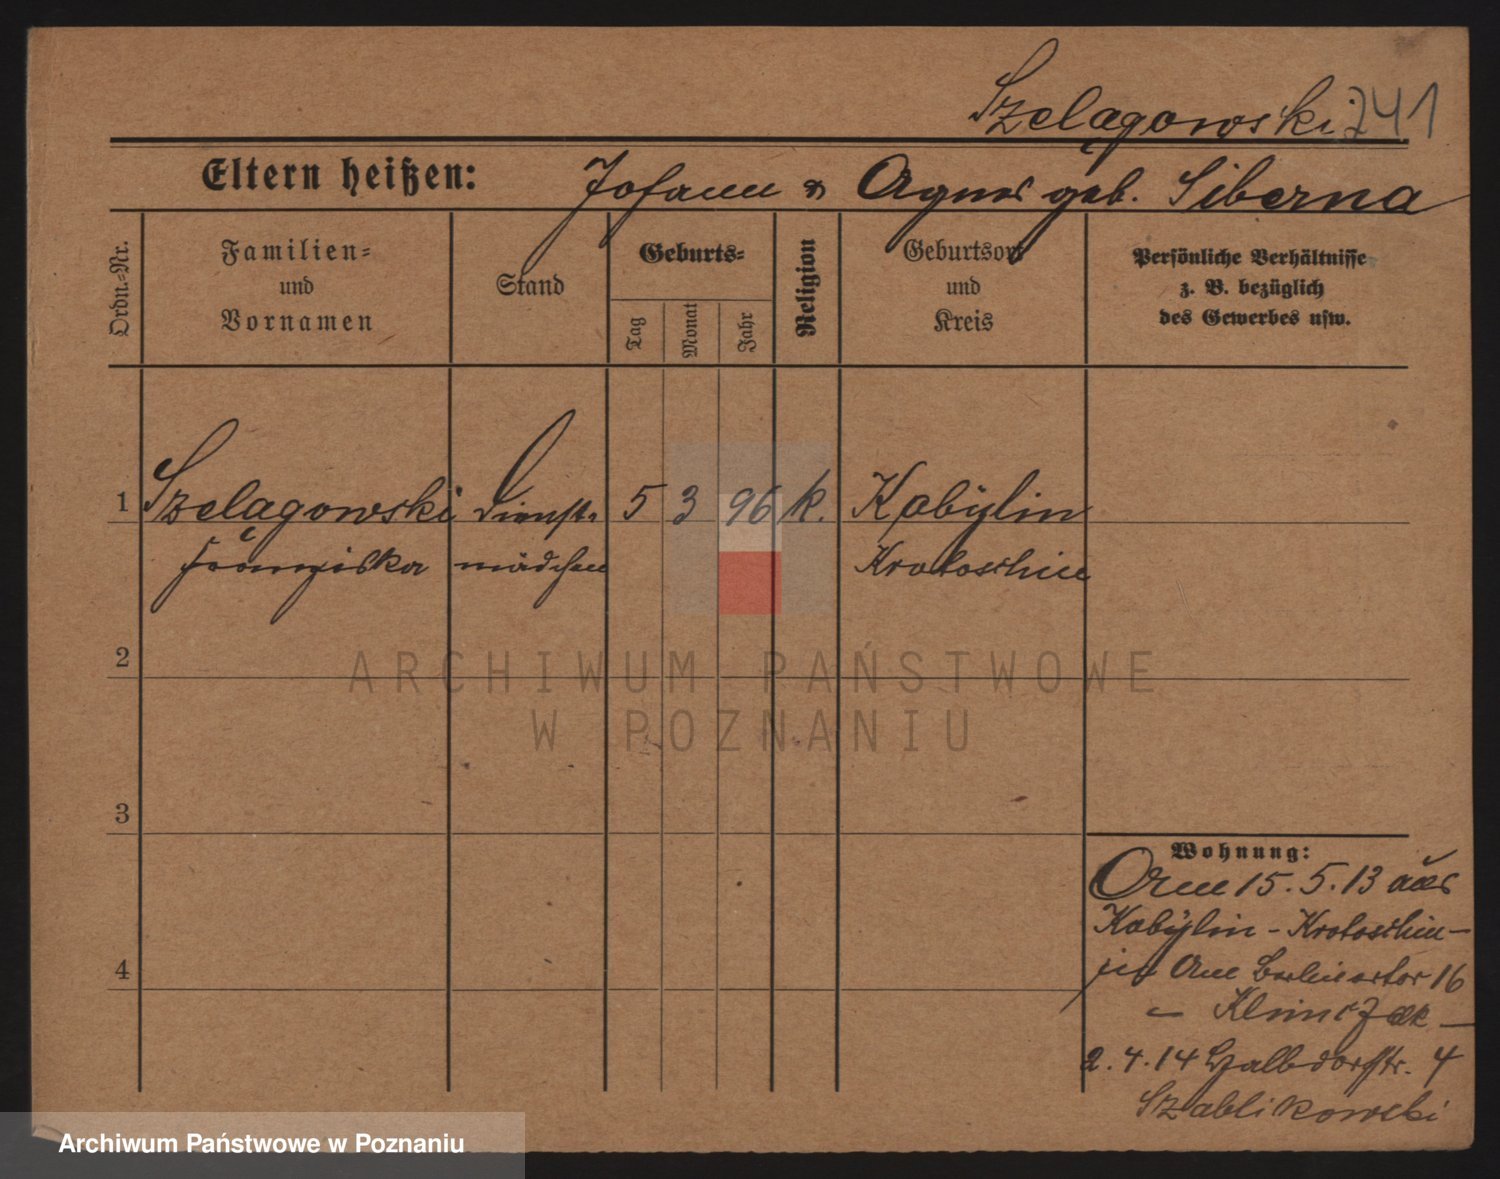 Szelągowski 741
Eltern heißen: Johann & Agnes geb. Siberna
Ordn.-Nr.
Familien-
und
Vornamen
Stand
Geburts-
Tag
Monat
Jahr
Religion
Geburtsort
und
Kreis
Persönliche Verhältnisse
z. B. bezüglich
des Gewerbes usw.
1 Szelągowski Dienst- 5 3 96 k. Kobylin
Franziska mädchen Krotoschin
2
3
4
Wohnung:
15. 5. 13 aus
Kobylin - Krotoschin -
Am Berlinertor 16
- Klimczak -
2. 4. 14 4
Szablikowski
ARCHIWUM PAŃSTWOWE
W POZNANIU
Archiwum Państwowe w Poznaniu